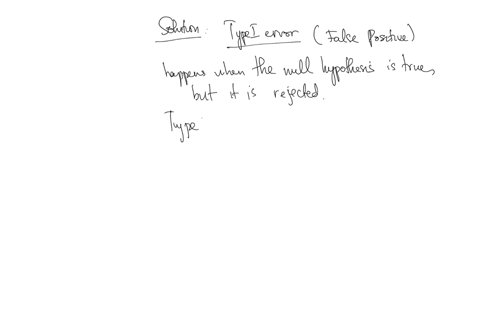 Solution: Type I error (False Positive)
happens when the null hypothesis is true,
but it is rejected.
Type